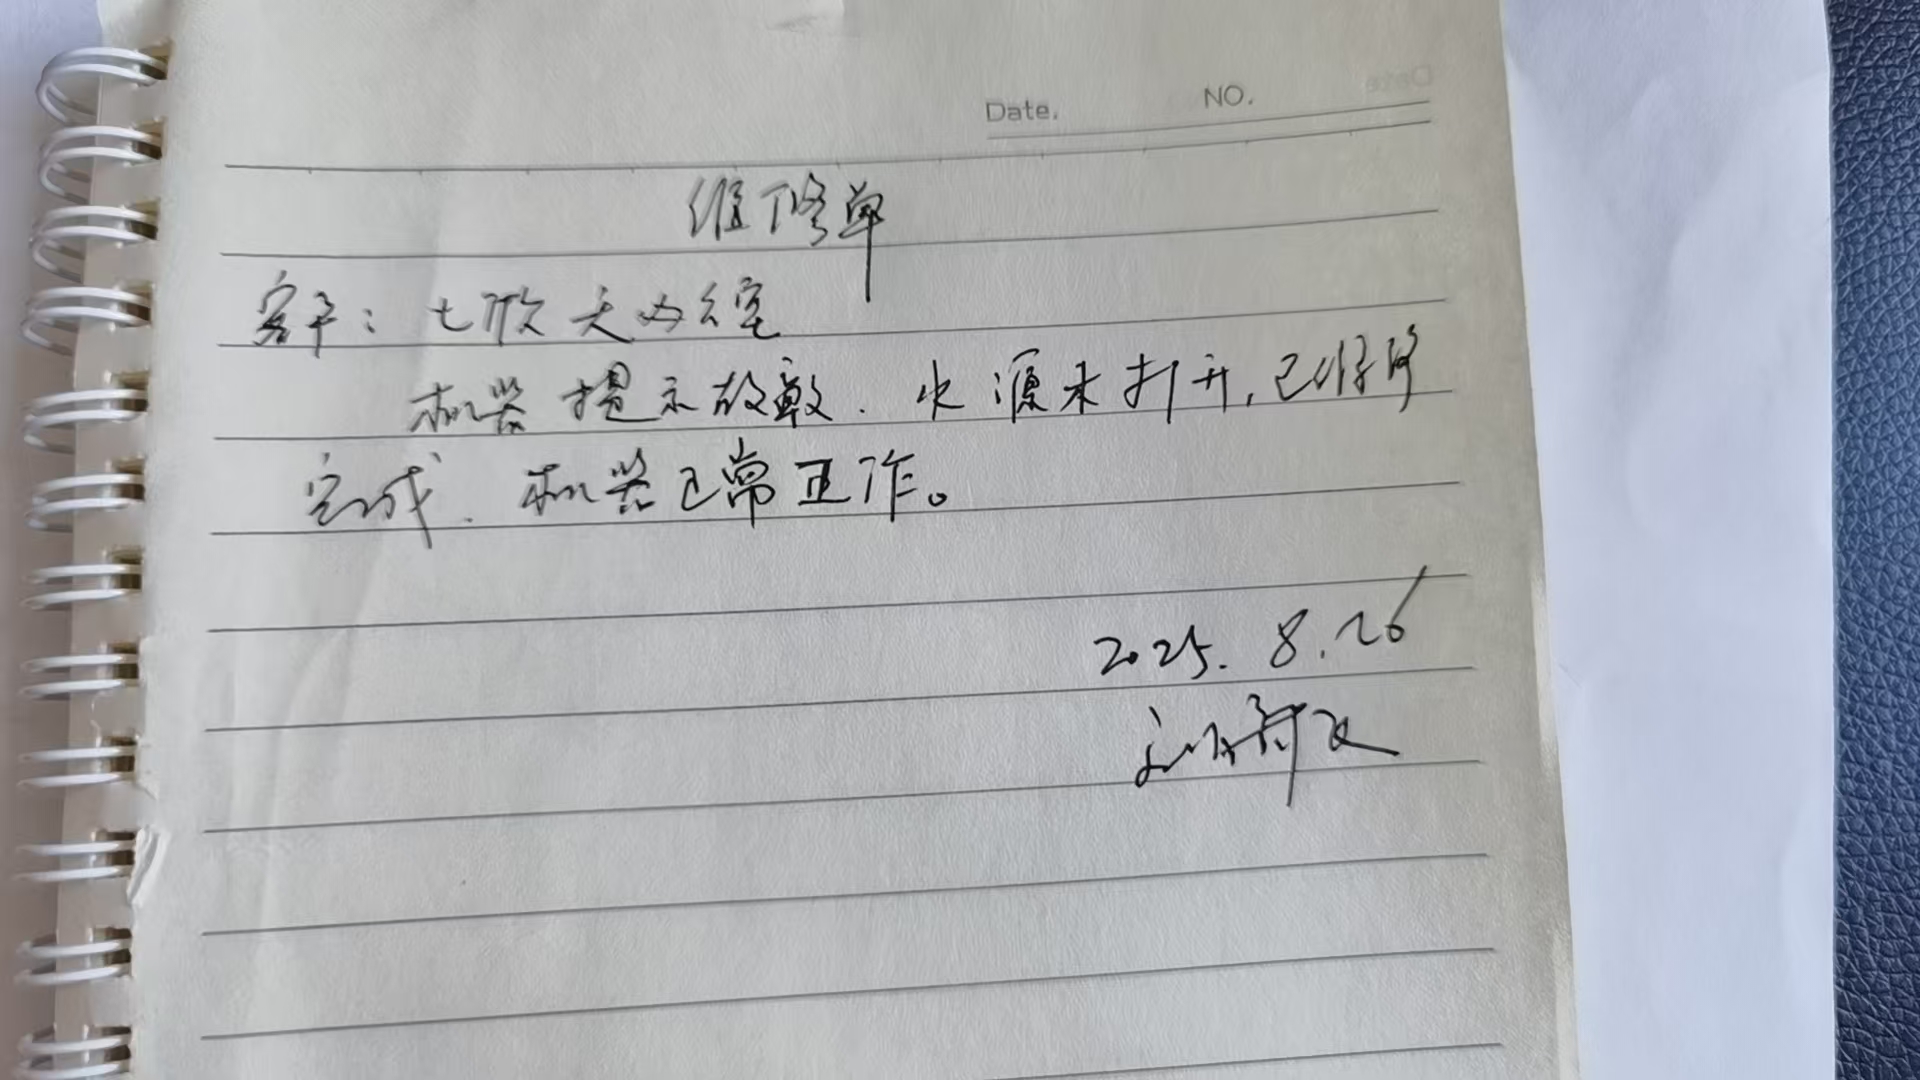 Date. NO.
维修单
客户：七院天
机器提示故障. 水源未打开,已维修
完成. 机器已常正作。
2025. 8. 26